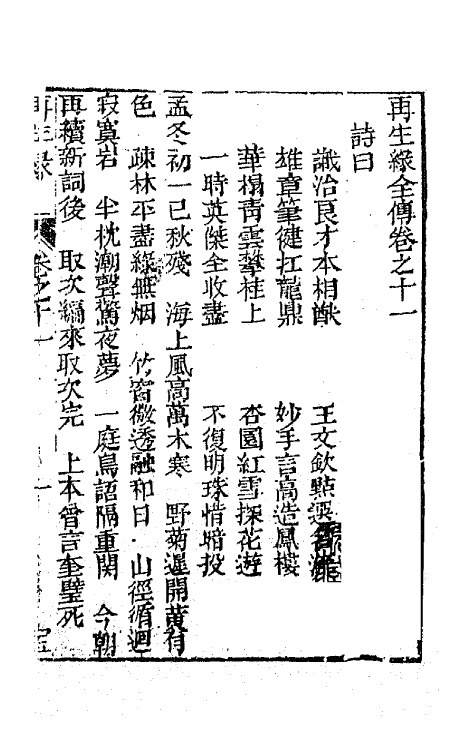 再生緣全傳卷之十一
詩曰
識治良才本相猷　王文欽點選
雄章筆健扛龍鼎　妙手言高造鳳樓
華榻靑雲攀桂上　杏園紅雪探花遊
一時英傑全收盡　不復明珠惜暗投
孟冬初一已秋殘　海上風高萬木寒　野菊遲開黃有
色　疎林平盡綠無烟　竹窗微透融和日　山徑循迴
寂寞岩　半枕潮聲驚夜夢　一庭鳥語隔重関　今朝
再續新詞後　取次編來取次完　上本曾言奎璧死
再生緣　卷之十一